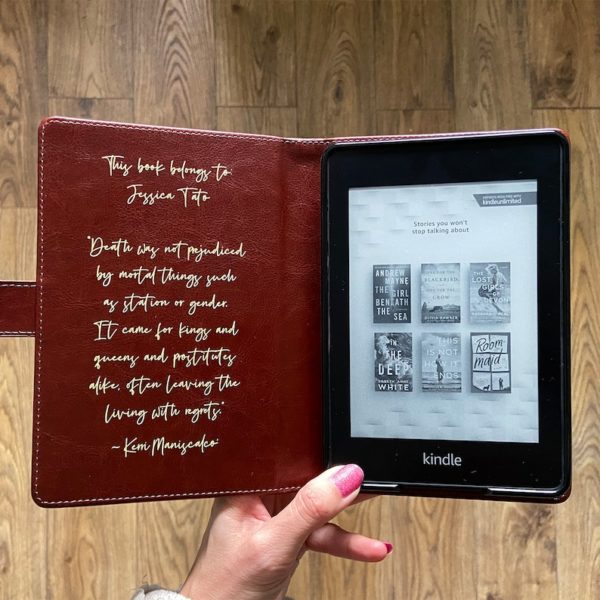 This book belongs to
Jessica Tato
"Death was not prejudiced
by mortal things such
as station or gender.
It came for kings and
queens and prostitutes
alike, often leaving the
living with regrets."
~ Kerri Maniscalco
kindleunlimited
Stories you won't
stop talking about
ANDREW
MAYNE
THE GIRL
BENEATH
THE
SEA
ONE FOR THE
BLACKBIRD,
ONE FOR THE
CROW
OLIVIA HAWKER
THE
LOST
GIRLS
OF
DEVON
IN
THE
DEEP
LORETH ANNE
WHITE
THIS
IS NOT
HOW IT
ENDS
Room
maid
kindle